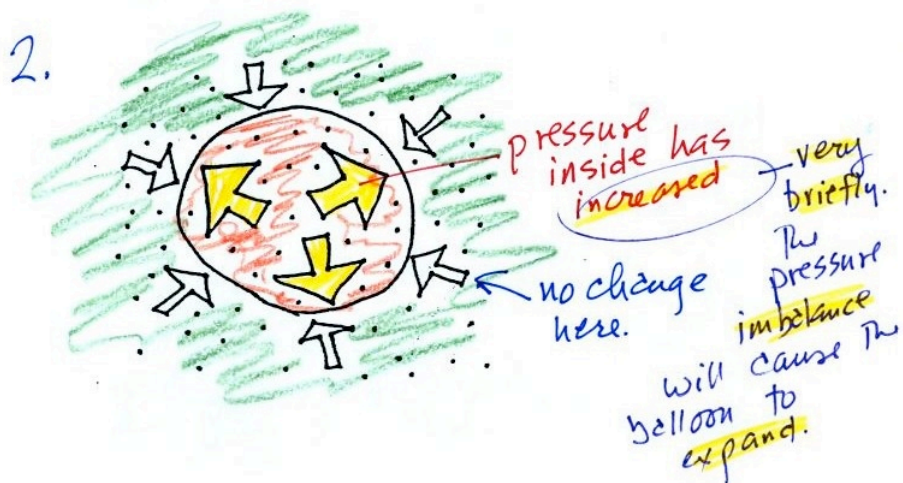 2.
pressure
inside has
increased
very
briefly.
The
pressure
imbalance
will cause the
balloon to
expand.
no change
here.